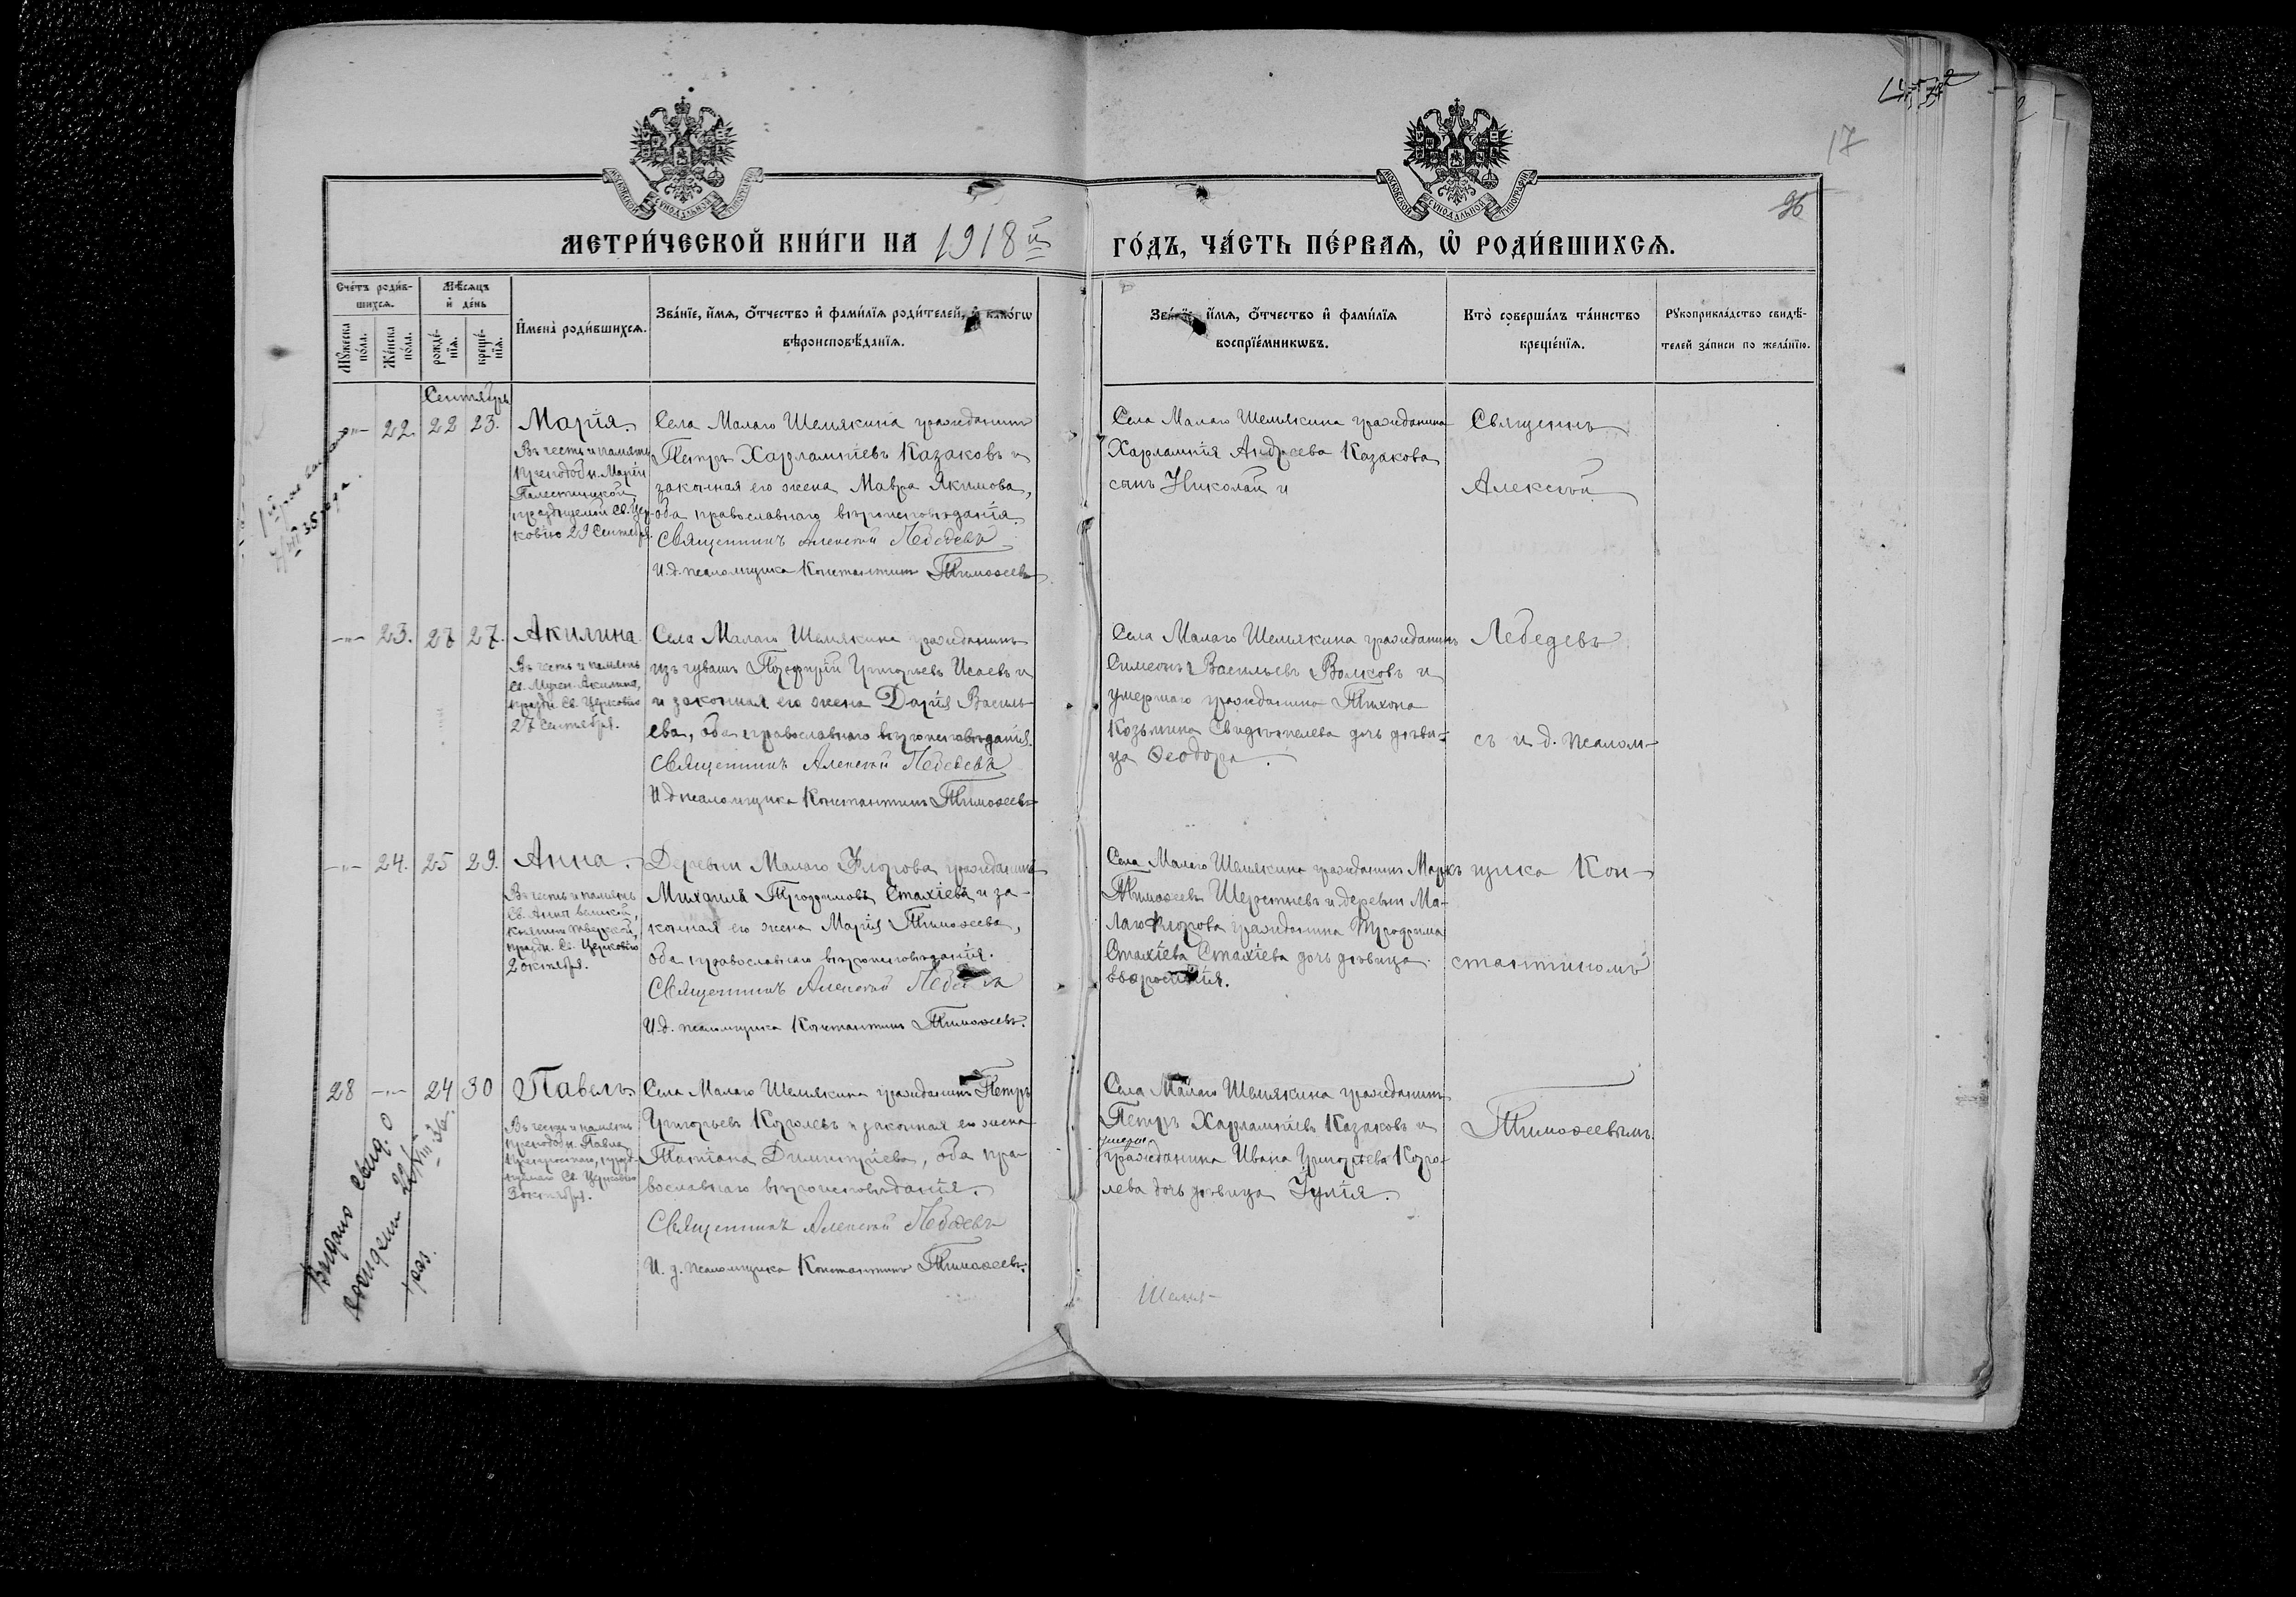 17
96
МОСКОВСКОЙ СУНОДАЛЬНОЙ ТИПОГРАФІИ
МОСКОВСКОЙ СУНОДАЛЬНОЙ ТИПОГРАФІИ
МЕТРИ́ЧЕСКОЙ КНИ́ГИ НА 1918 й
ГО́ДЪ, ЧА́СТЬ ПЕ́РВАЯ, Ѡ РОДИ́ВШИХСЯ.
Сче́тъ роди́в-
шихся.
Мѣ́сяцъ
и де́нь
Му́жеска
по́ла.
Же́нска
по́ла.
рожде́-
нїя.
креще́-
нїя.
Имена̀ роди́вшихся.
Зва́нїе, и́мя, о́тчество и фами́лїя роди́телей, и како́гѡ
вѣроисповѣ́данїя.
Зва́нїе, и́мя, о́тчество и фами́лїя
воспрїе́мникѡвъ.
Кто̀ соверша́лъ та́инство
креще́нїя.
Рукоприкла́дство свидѣ́-
телей за́писи по жела́нїю.
Сентябрь
-"- 22. 22 23. Марія.
Въ честь и память
преподобн. Маріи
Палестинской,
празднуемой Св. Цер-
ковію 29 Сентября.
Села Малаго Шемякина гражданинъ
Петръ Харлампіевъ Казаковъ и
законная его жена Мавра Якимова,
оба православнаго вѣроисповѣданія.
Священникъ Алексій Лебедевъ
И. д. псаломщика Константинъ Тимоѳеевъ
Села Малаго Шемякина гражданина
Харлампія Андреева Казакова
сынъ Николай и
Священникъ
Алексій
-"- 23. 27 27. Акилина.
Въ честь и память
Св. Мучен. Акилины,
праздн. Св. Церковію
27 Сентября.
Села Малаго Шемякина гражданинъ
изъ чувашъ Порфирій Григорьевъ Исаевъ и
и законная его жена Дарія Василь-
ева, оба православнаго вѣроисповѣданія.
Священникъ Алексій Лебедевъ
И. д псаломщика Константинъ Тимоѳеевъ
Села Малаго Шемякина гражданинъ
Симеонъ Васильевъ Волковъ и
умершаго гражданина Тихона
Козьмина дочь дѣви-
ца Ѳеодора.
Лебедевъ
съ и д. псалом-
-"- 24. 25 29. Анна.
Въ честь и память
Св. Анны великой
княгини Тверской,
праздн. Св. Церковію
2 октября.
Деревни Малаго Флорова гражданинъ
Михаилъ Трофимовъ Стахіевъ и за-
конная его жена Марія Тимоѳеева,
оба православнаго вѣроисповѣданія.
Священникъ Алексій Лебедевъ
И. д. псаломщика Константинъ Тимоѳеевъ.
Села Малаго Шемякина гражданинъ Маркъ
Тимоѳеевъ Шерстневъ и деревни Ма-
лаго Флорова гражданина Трофима
Стахіева Стахіева дочь дѣвица
щика Кон-
стантиномъ
28 -"- 24 30 Павелъ
Въ честь и память
преподобн. Павла
Препростаго, празд-
нуемаго Св. Церковію
октября.
Села Малаго Шемякина гражданинъ Петръ
Григорьевъ Королевъ и законная его жена
Татіана Димитріева, оба пра-
вославнаго вѣроисповѣданія.
Священникъ Алексій Лебедевъ
И. д. псаломщика Константинъ Тимоѳеевъ.
Села Малаго Шемякина гражданинъ
Петръ Харлампіевъ Казаковъ и
умерш.
гражданина Ивана Григорьева Коро-
лева дочь дѣвица Іулія.
Тимоѳеевымъ.
Выдано свид. о
рожден
Шемя-